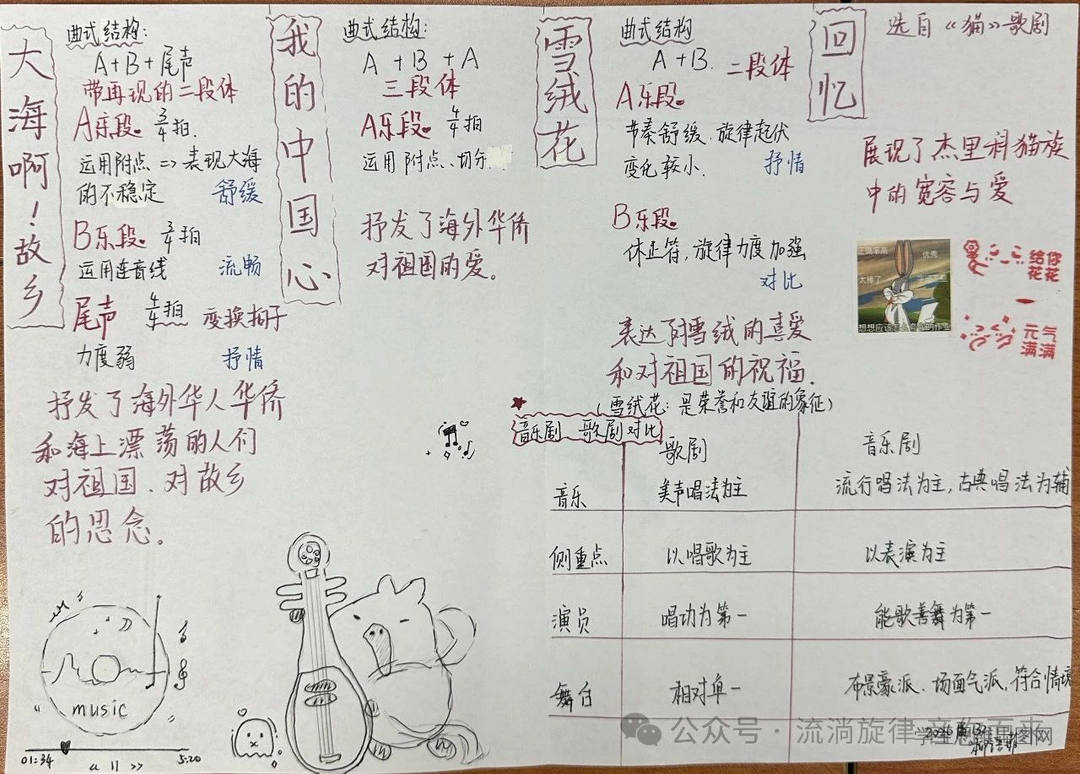 大海啊！故乡
曲式结构:
A+B+尾声
带再现的二段体
A乐段. 3/4拍.
运用附点 => 表现大海
的不稳定 舒缓
B乐段. 3/4拍
运用连音线 流畅
尾声 4/4拍 变换拍子
力度弱 抒情
抒发了海外华人华侨
和海上漂荡的人们
对祖国、对故乡
的思念。
我的中国心
曲式结构:
A + B + A
三段体
A乐段. 4/4拍
运用附点、切分
抒发了海外华侨
对祖国的爱。
雪绒花
曲式结构
A+B. 二段体
A乐段.
节奏舒缓.旋律起伏
变化较小. 抒情
B乐段.
休止符,旋律力度加强
对比
表达了对雪绒的喜爱
和对祖国的祝福.
(雪绒花：是荣誉和友谊的象征)
回忆
选自《猫》歌剧
展现了杰里科猫族
中的宽容与爱
优秀
太棒了
给你花花
元气满满
音乐剧 歌剧对比
歌剧 音乐剧
音乐 美声唱法为主 流行唱法为主,古典唱法为辅
侧重点 以唱歌为主 以表演为主
演员 唱功为第一 能歌善舞为第一
舞台 相对单一 布景豪派、场面气派,符合情境
music
01:34 5:20
公众号・流淌旋律